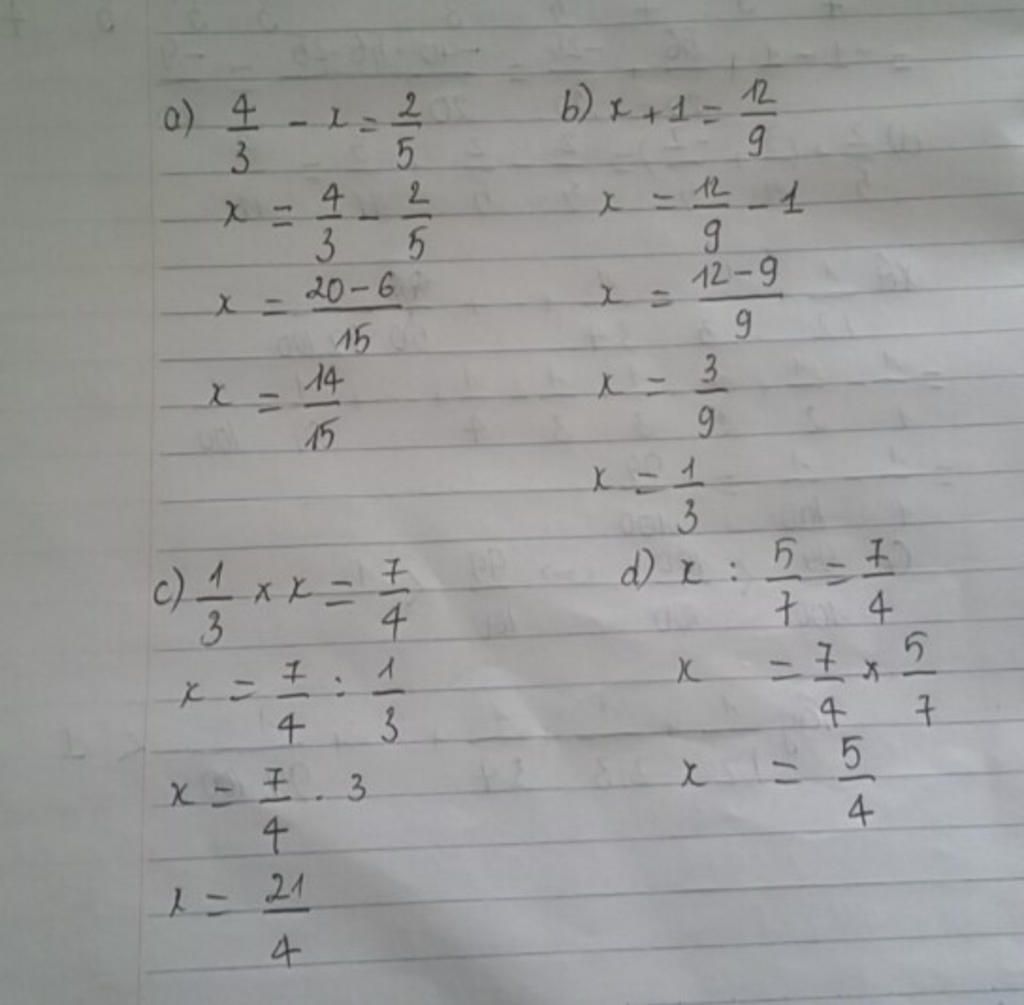 a) 4/3 - x = 2/5
x = 4/3 - 2/5
x = (20 - 6)/15
x = 14/15
b) x + 1 = 12/9
x = 12/9 - 1
x = (12 - 9)/9
x = 3/9
x = 1/3
c) 1/3 × x = 7/4
x = 7/4 : 1/3
x = 7/4 . 3
x = 21/4
d) x : 5/7 = 7/4
x = 7/4 × 5/7
x = 5/4